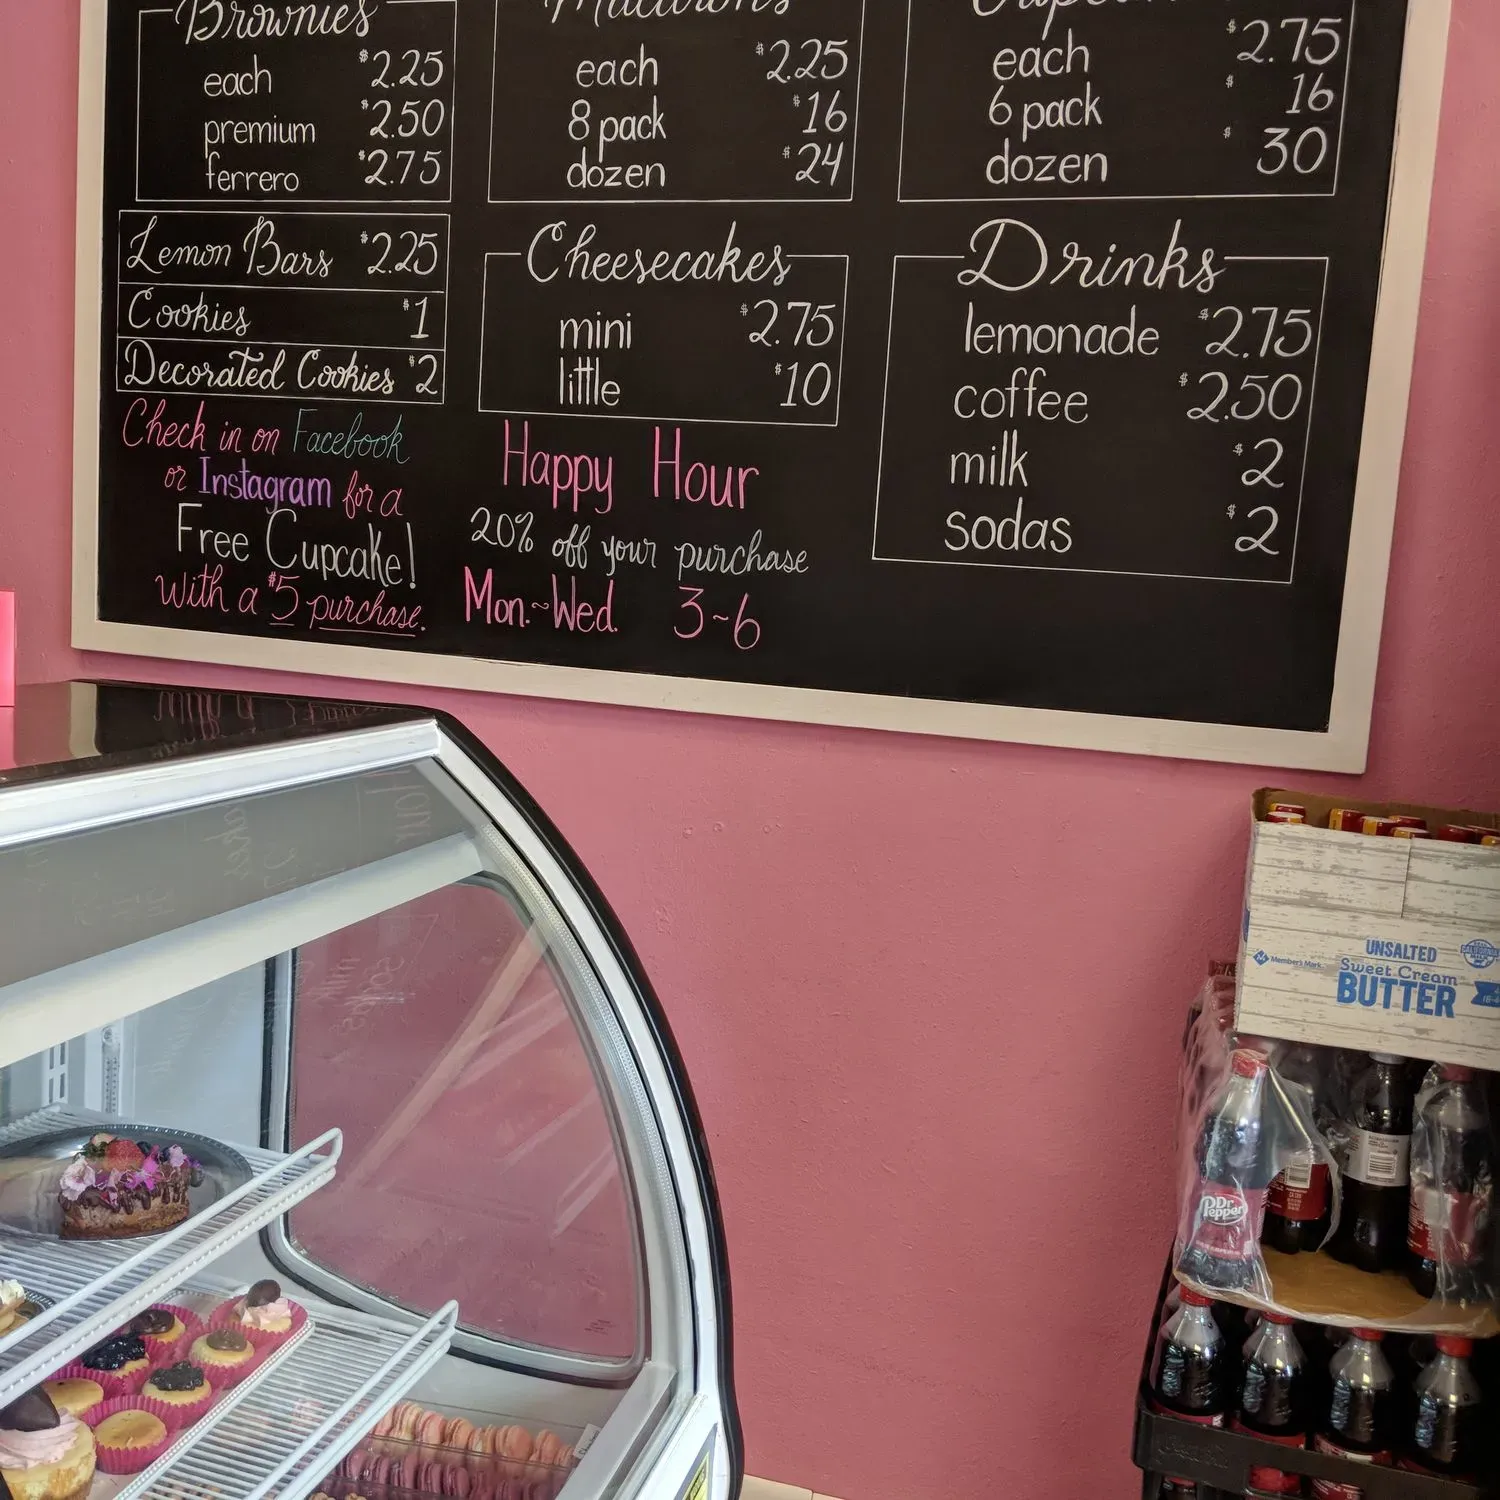 Brownies
each $2.25
premium $2.50
ferrero $2.75
Macarons
each $2.25
8 pack $16
dozen $24
each $2.75
6 pack $16
dozen $30
Lemon Bars $2.25
Cookies $1
Decorated Cookies $2
Cheesecakes
mini $2.75
little $10
Drinks
lemonade $2.75
coffee $2.50
milk $2
sodas $2
Check in on Facebook
or Instagram for a
Free Cupcake!
with a $5 purchase.
Happy Hour
20% off your purchase
Mon.~Wed. 3~6
UNSALTED
Member's Mark
Sweet Cream
BUTTER
Dr
Pepper